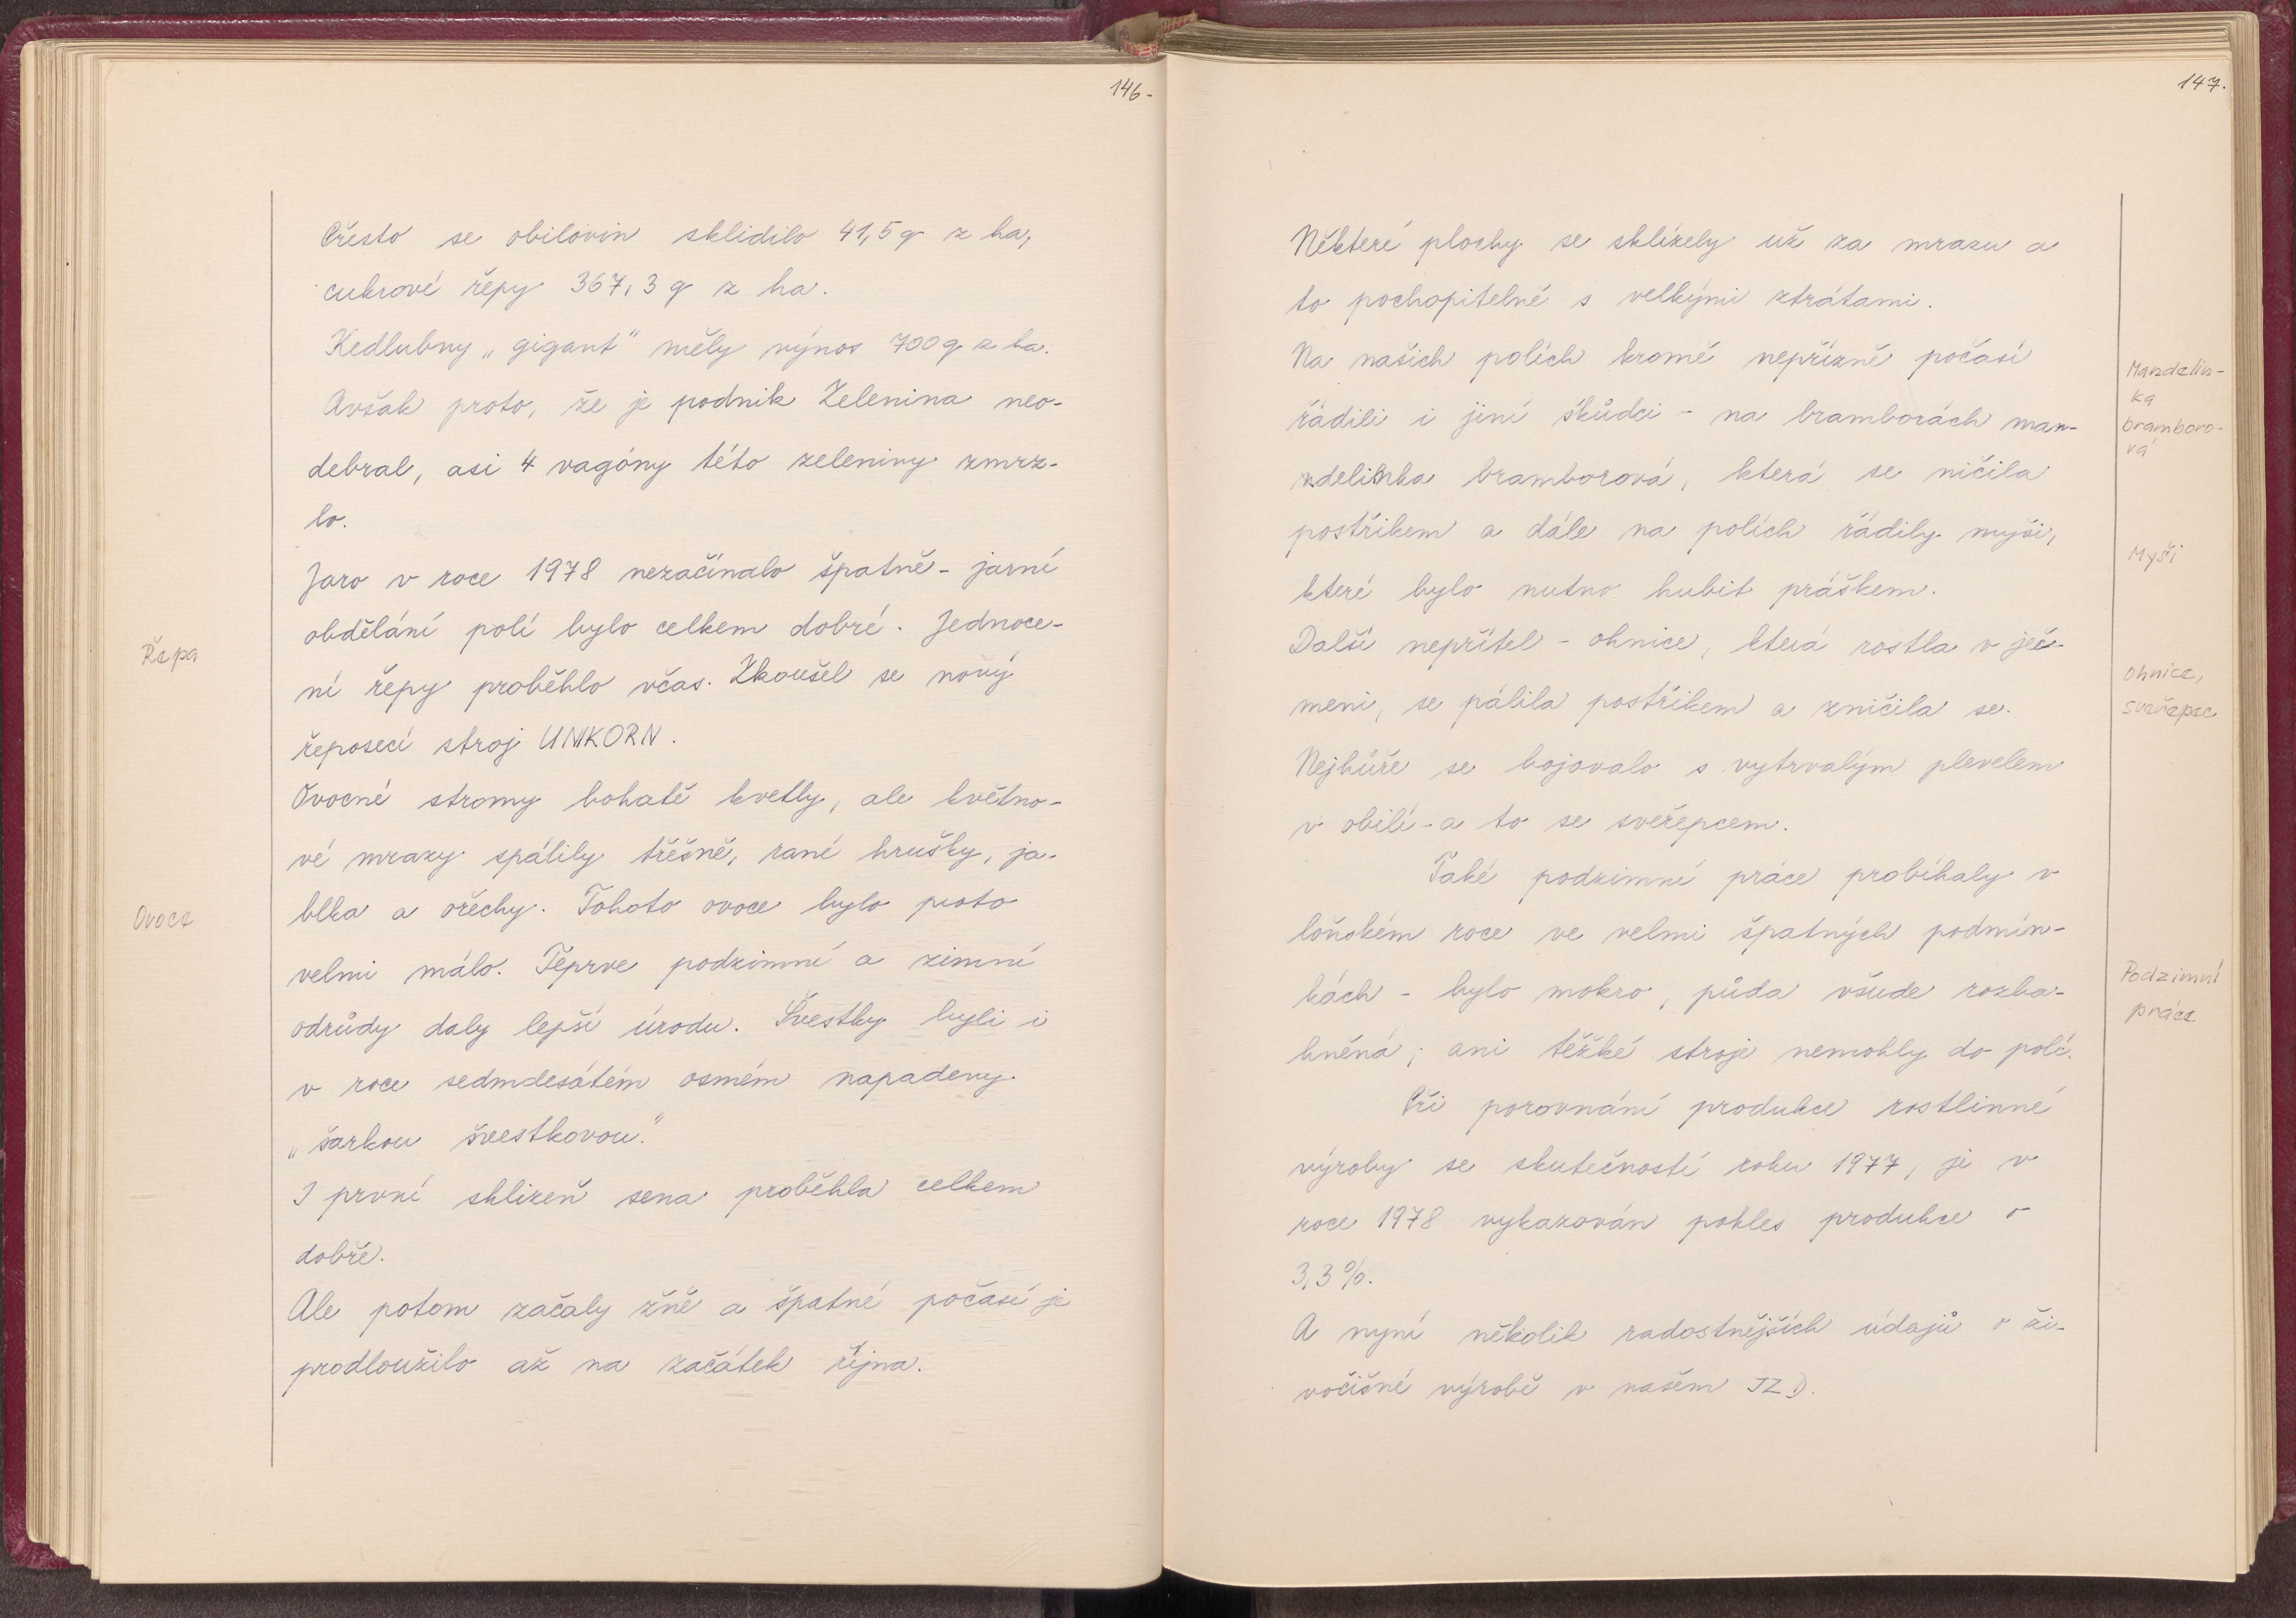 146-
Přesto se obilovin sklidilo 41,5 q z ha,
cukrové řepy 367,3 q z ha.
Kedlubny „gigant" měly výnos 700 q z ha.
Avšak proto, že je podnik Zelenina neo-
debral, asi 4 vagóny této zeleniny zmrz-
lo.
Jaro v roce 1978 nezačínalo špatně - jarní
obdělání polí bylo celkem dobré. Jednoce-
Řepa
ní řepy proběhlo včas. Zkoušel se nový
řeposecí stroj UNIKORN.
Ovocné stromy bohatě kvetly, ale květno-
vé mrazy spálily třěšně, rané hrušky, ja-
blka a ořechy. Tohoto ovoce bylo proto
Ovoce
velmi málo. Teprve podzimní a zimní
odrůdy daly lepší úrodu. Švestky byli i
v roce sedmdesátém osmém napadeny
„šarkou švestkovou."
I první sklizeň sena proběhla celkem
dobře.
Ale potom začaly žně a špatné počasí je
prodloužilo až na začátek října.
147.
Některé plochy se sklízely už za mrazu a
to pochopitelně s velkými ztrátami.
Na našich polích kromě nepřízně počasí
Mandelin-
ka
bramboro-
vá
řádili i jiní škůdci - na bramborách man-
ndelinka bramborová, která se ničila
postřikem a dále na polích řádily myši,
Myši
které bylo nutno hubit práškem.
Další nepřítel - ohnice, která rostla v ječ-
Ohnice,
sveřepec
meni, se pálila postřikem a zničila se.
Nejhůře se bojovalo s vytrvalým plevelem
v obilí - a to se sveřepcem.
Také podzimní práce probíhaly v
loňském roce ve velmi špatných podmín-
Podzimní
práce
kách - bylo mokro, půda všude rozba-
hněná; ani těžké stroje nemohly do polí.
Při porovnání produkce rostlinné
výroby se skutečností roku 1977, je v
roce 1978 vykazován pokles produkce o
3,3%.
A nyní několik radostnějších údajů o ži-
vočišné výrobě v našem JZD.